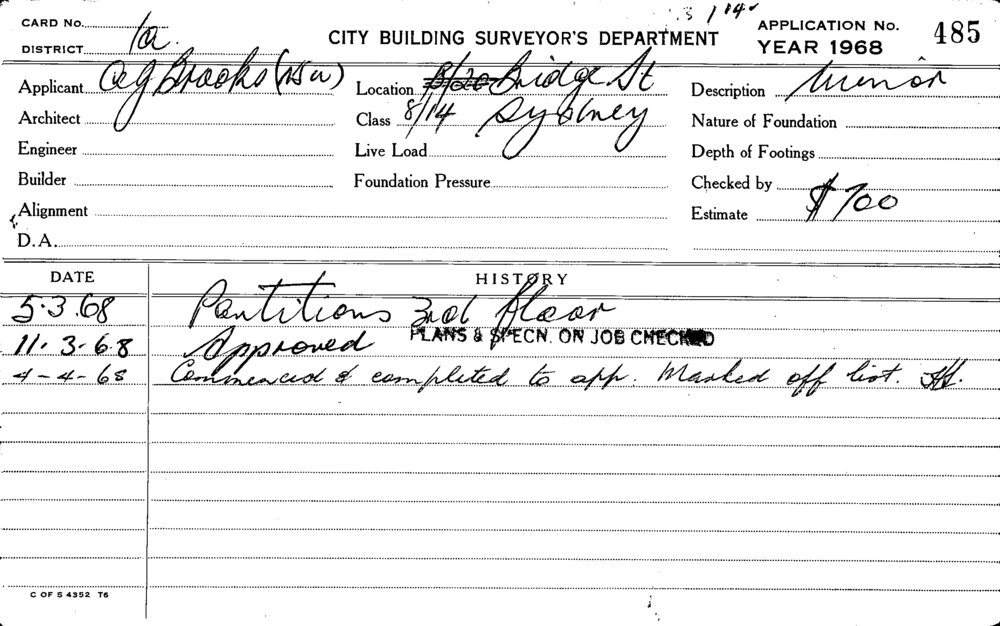 CARD No.
DISTRICT 1a.
CITY BUILDING SURVEYOR'S DEPARTMENT
APPLICATION No. 485
YEAR 1968
Applicant Brooks (NSW)
Location 8/20 Bridge St
Description Minor
Architect
Class 8/14 Sydney
Nature of Foundation
Engineer
Live Load
Depth of Footings
Builder
Foundation Pressure
Checked by
Alignment
Estimate $700
D.A.
DATE HISTORY
5.3.68 Partitions 3rd floor
11.3.68 Approved PLANS & SPECN. ON JOB CHECKED
4-4-68 Commenced & completed to app. Marked off list.
C OF S 4352 T6